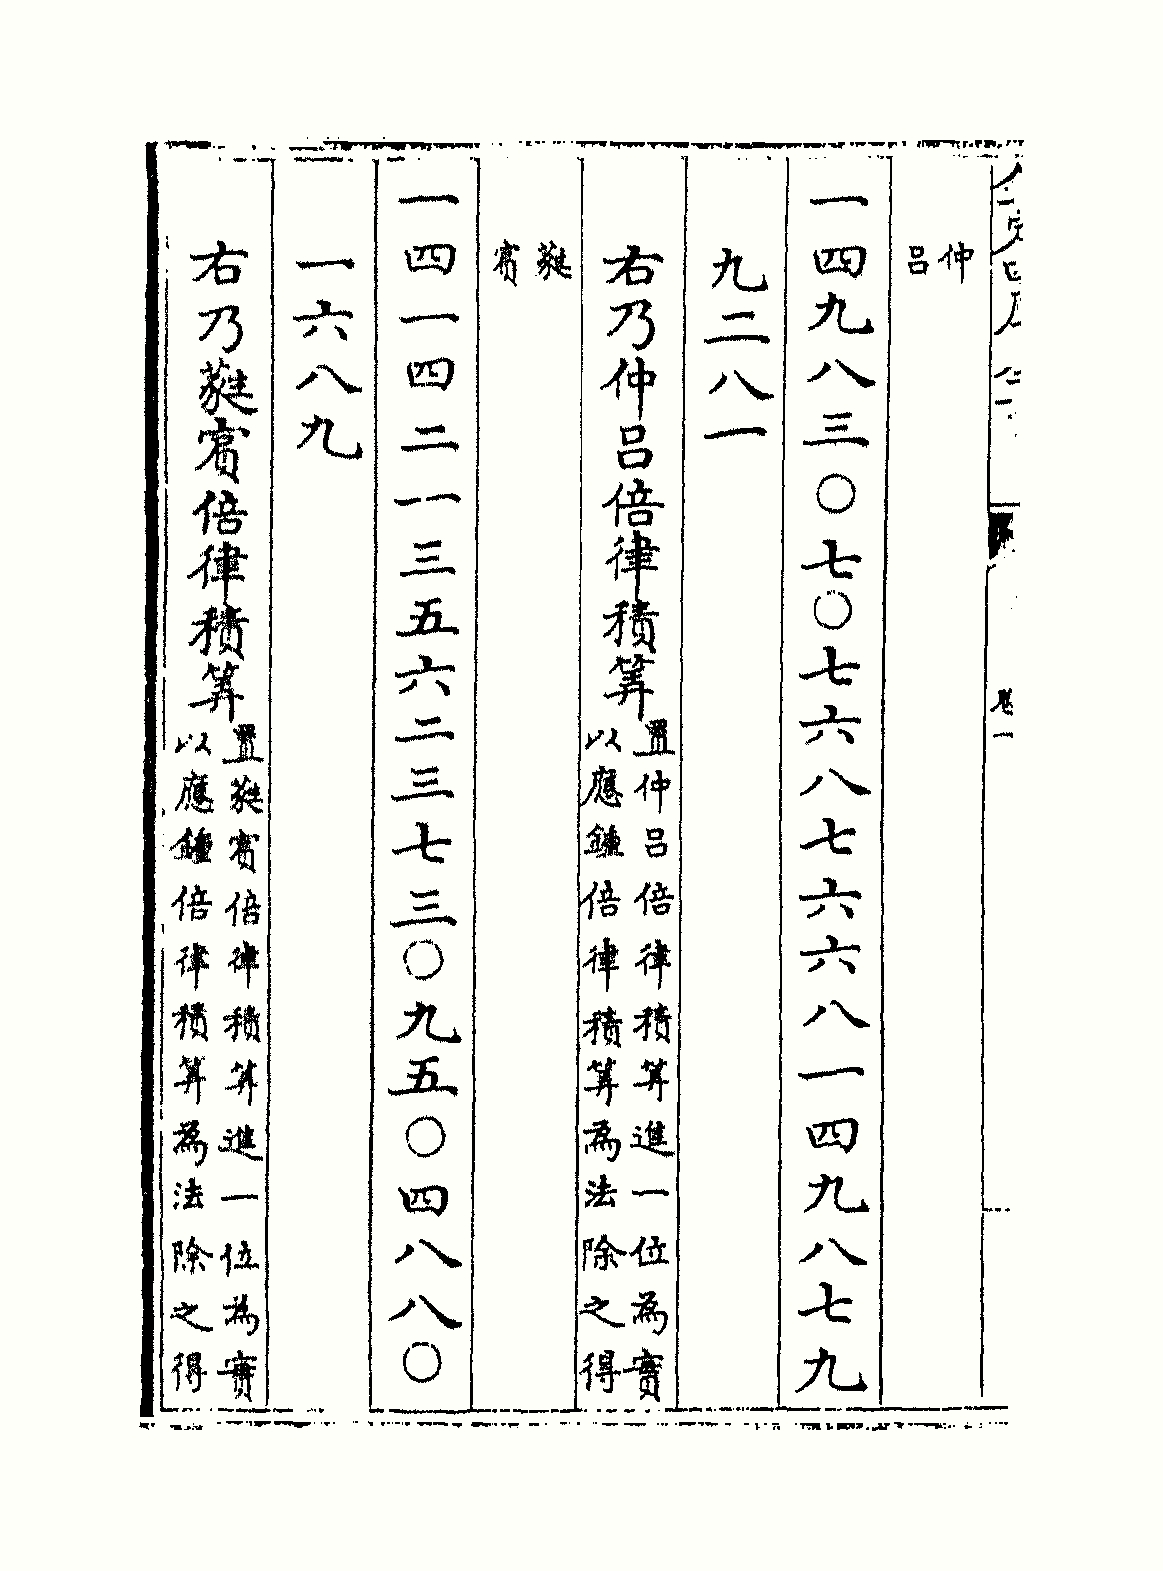 卷一
仲呂
一四九八三〇七〇七六八七六六八一四九八七九
九二八一
右乃仲呂倍律積筭
置仲呂倍律積筭進一位為實
以應鐘倍律積筭為法除之得
蕤賓
一四一四二一三五六二三七三〇九五〇四八八〇
一六八九
右乃蕤賓倍律積筭
置蕤賓倍律積筭進一位為實
以應鐘倍律積筭為法除之得